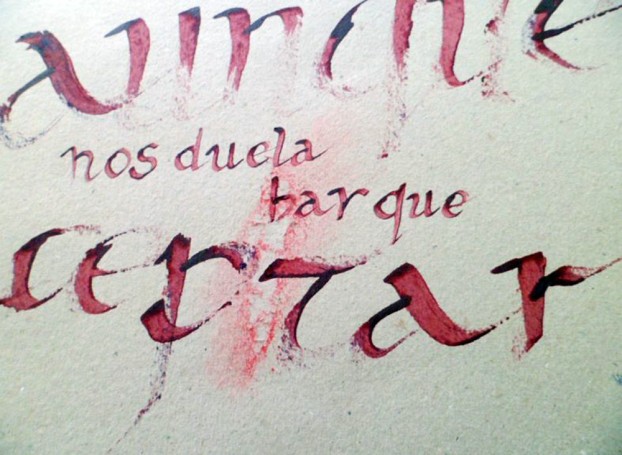 aunque
nos duela
que
ceptar